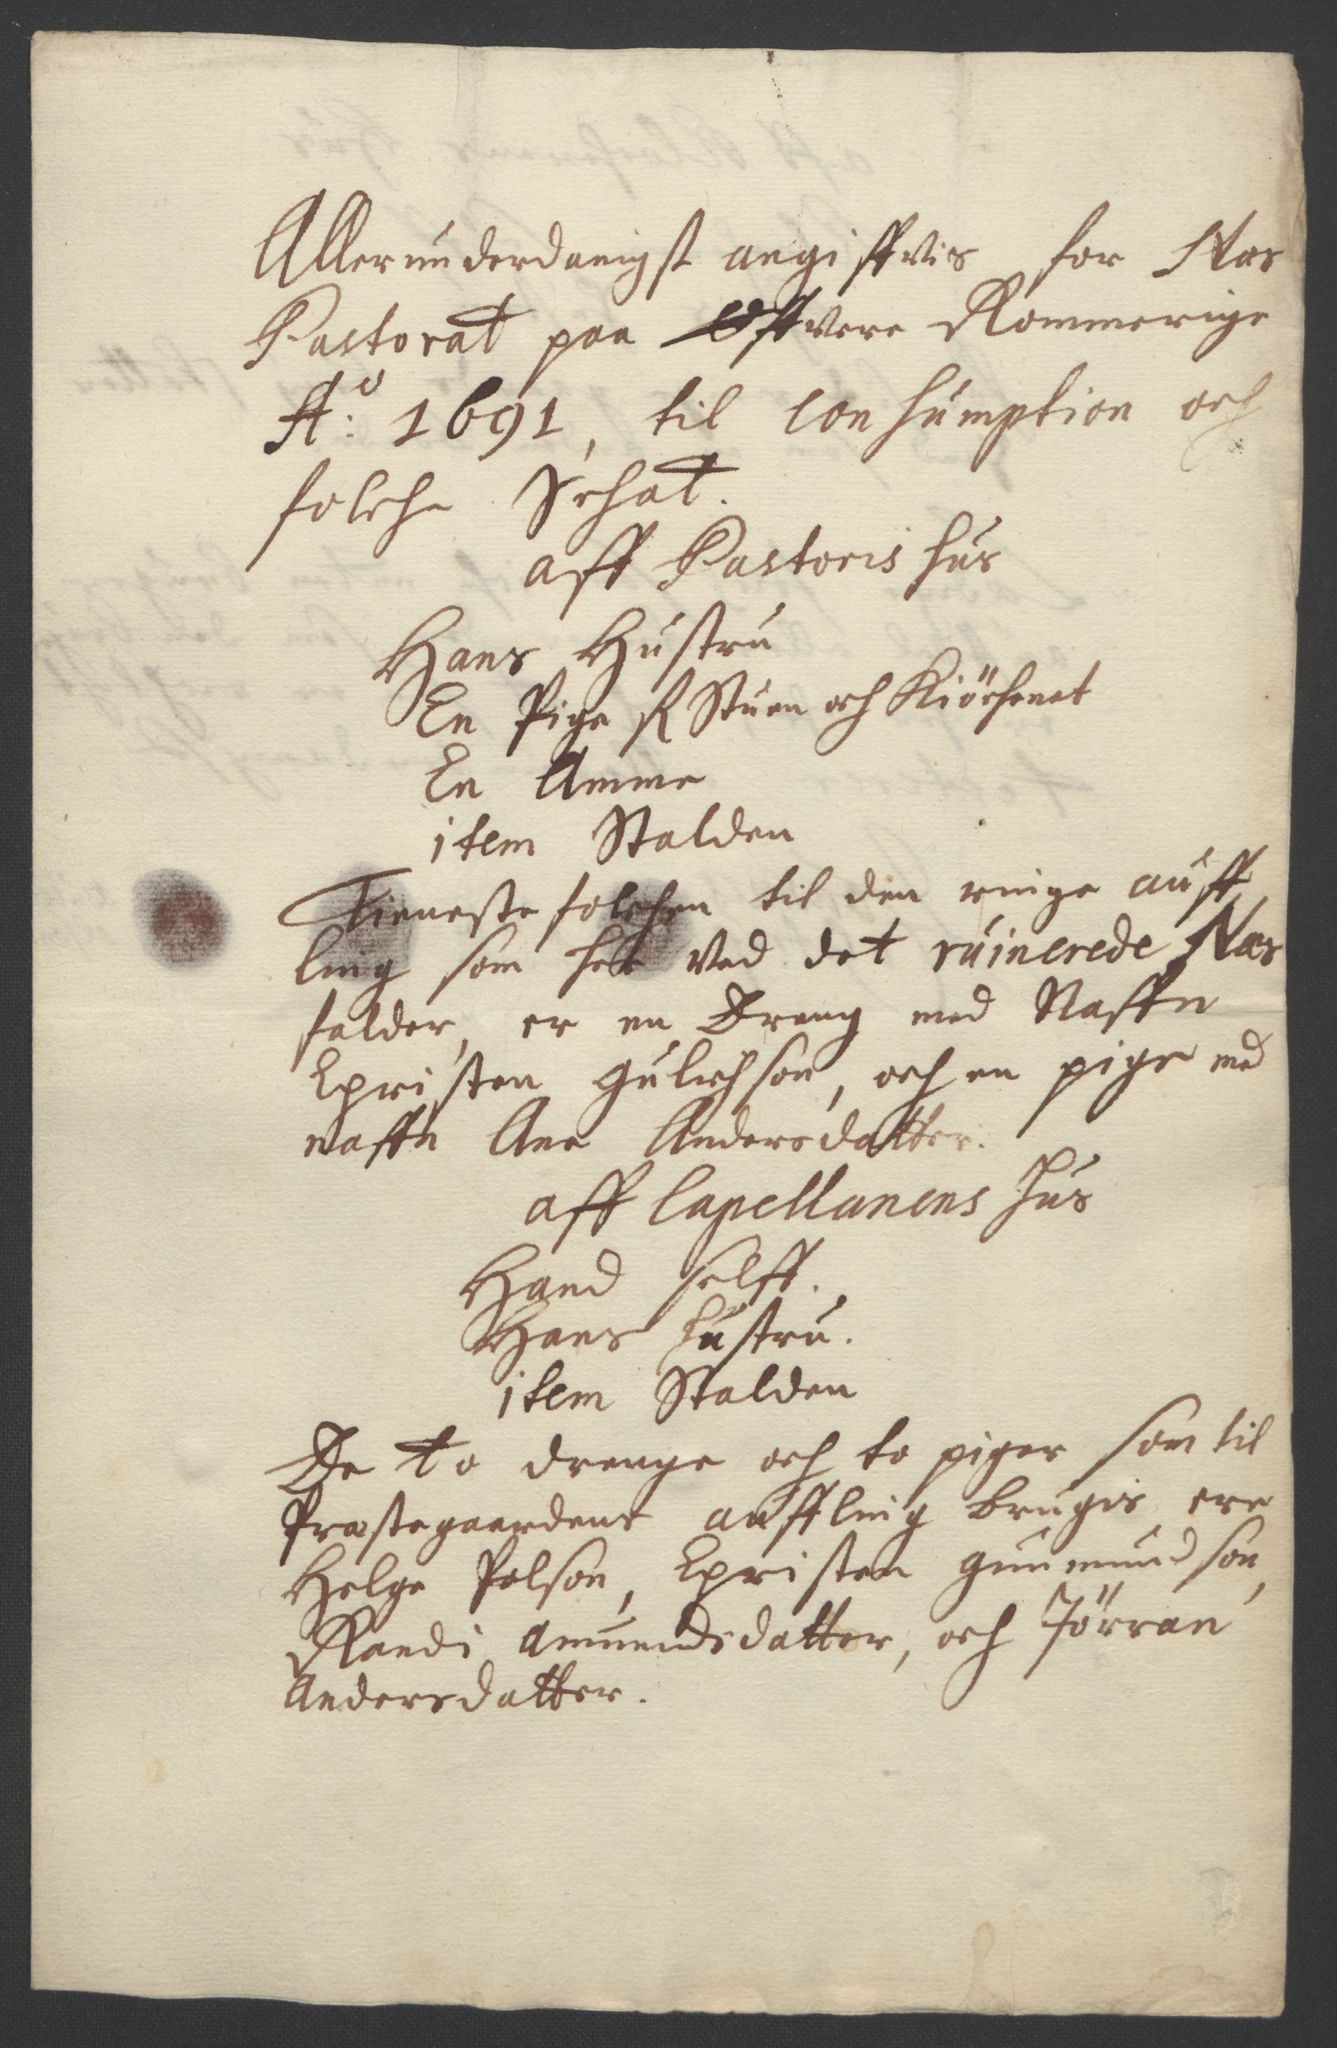 Allerunderdanigst angiffvis for Næs
Pastorat paa Øffvere Rommerige
Ao: 1691, til Consumption och
folche Schat.
aff Pastoris hus
Hans Hustru
En Pige i Stuen och Kiöchenet
En Amme
item Stalden
Tieneste folchen til den ringe auff,
ling som her ved det ruinerede Næs
falder, er en Dreng med Naffn
Christen Gulichson, och en pige med
naffn Ane Andersdatter.
aff Capellanens hus
Hand selff.
Hans hustru.
item Stalden
De to drenge och to piger som til
Præstegaardens auffling brugis ere
Helge Polson, Christen Gunmundson,
Randi Amundsdatter, och Jörran
Andersdatter.